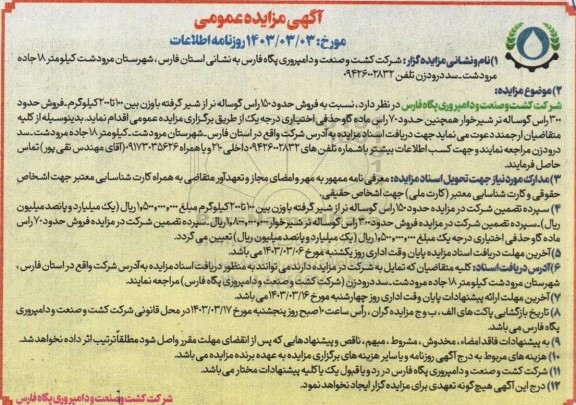 آگهی مزایده عمومی
مورخ: ۱۴۰۳/۰۳/۰۳ روزنامه اطلاعات
۱) نام و نشانی مزایده گزار: شرکت کشت و صنعت و دامپروری پگاه فارس به نشانی استان فارس، شهرستان مرودشت کیلومتر ۱۸ جاده
مرودشت ـ سد درودزن تلفن ۰۹۴۲۶۰۰۲۸۳۲
۲) موضوع مزایده:
شرکت کشت و صنعت و دامپروری پگاه فارس در نظر دارد، نسبت به فروش حدود ۱۵۰ راس گوساله نر از شیر گرفته با وزن بین ۱۰۰ تا ۲۰۰ کیلوگرم ـ فروش حدود
۳۰۰ راس گوساله نر شیرخوار همچنین حدود ۷۰ راس ماده گاو حذفی اختیاری درجه یک از طریق برگزاری مزایده عمومی اقدام نماید. بدینوسیله از کلیه
متقاضیان ارجمند دعوت می نماید جهت دریافت اسناد مزایده به آدرس شرکت واقع در استان فارس ـ شهرستان مرودشت ـ کیلومتر ۱۸ جاده مرودشت ـ سد
درودزن مراجعه نمایند و جهت کسب اطلاعات بیشتر با شماره تلفن های ۰۹۴۲۶۰۰۲۸۳۲ داخلی ۲۱۰ و یا همراه ۰۹۱۷۳۰۳۵۶۲۶ (آقای مهندس نقی پور) تماس
حاصل فرمایند.
۳) مدارک مورد نیاز جهت تحویل اسناد مزایده: معرفی نامه ممهور به مهر و امضای مجاز و تعهدآور متقاضی به همراه کارت شناسایی معتبر جهت اشخاص
حقوقی و کارت شناسایی معتبر (کارت ملی) جهت اشخاص حقیقی.
۴) سپرده تضمین شرکت در مزایده حدود ۱۵۰ راس گوساله نر از شیر گرفته با وزن بین ۱۰۰ تا ۲۰۰ کیلوگرم مبلغ ۱/۵۰۰/۰۰۰/۰۰۰ ریال (یک میلیارد و پانصد میلیون
ریال) ـ سپرده تضمین شرکت در مزایده فروش حدود ۳۰۰ راس گوساله نر شیرخوار ۱/۸۰۰/۰۰۰/۰۰۰ ریال ـ سپرده تضمین شرکت در مزایده فروش حدود ۷۰ راس
ماده گاو حذفی اختیاری درجه یک مبلغ ۱/۵۰۰/۰۰۰/۰۰۰ ریال (یک میلیارد و پانصد میلیون ریال) تعیین می گردد.
۵) آخرین مهلت دریافت اسناد مزایده پایان وقت اداری روز یکشنبه مورخ ۱۴۰۳/۰۳/۰۶ می باشد.
۶) آدرس دریافت اسناد: کلیه متقاضیان که تمایل به شرکت در مزایده دارند می توانند به منظور دریافت اسناد مزایده به آدرس شرکت واقع در استان فارس،
شهرستان مرودشت کیلومتر ۱۸ جاده مرودشت ـ سد درودزن (شرکت کشت و صنعت و دامپروری پگاه فارس) مراجعه نمایند.
۷) آخرین مهلت ارائه پیشنهادات پایان وقت اداری روز چهارشنبه مورخ ۱۴۰۳/۰۳/۱۶ می باشد.
۸) تاریخ بازگشایی پاکت های الف، ب و ج مزایده گران، راس ساعت ۱۰ صبح روز پنجشنبه مورخ ۱۴۰۳/۰۳/۱۷ در محل قانونی شرکت کشت و صنعت و دامپروری
پگاه فارس می باشد.
۹) به پیشنهادات فاقد امضاء، مخدوش، مشروط، مبهم، ناقص و پیشنهادهایی که پس از انقضای مهلت مقرر واصل شود مطلقاً ترتیب اثر داده نخواهد شد.
۱۰) هزینه های مربوط به درج آگهی روزنامه و یا سایر هزینه های برگزاری مزایده به عهده برنده مزایده می باشد.
۱۱) شرکت کشت و صنعت و دامپروری پگاه فارس در رد و یا قبول یک یا کلیه پیشنهادات مختار می باشد.
۱۲) درج این آگهی هیچ گونه تعهدی برای مزایده گزار ایجاد نخواهد نمود.
شرکت کشت و صنعت و دامپروری پگاه فارس